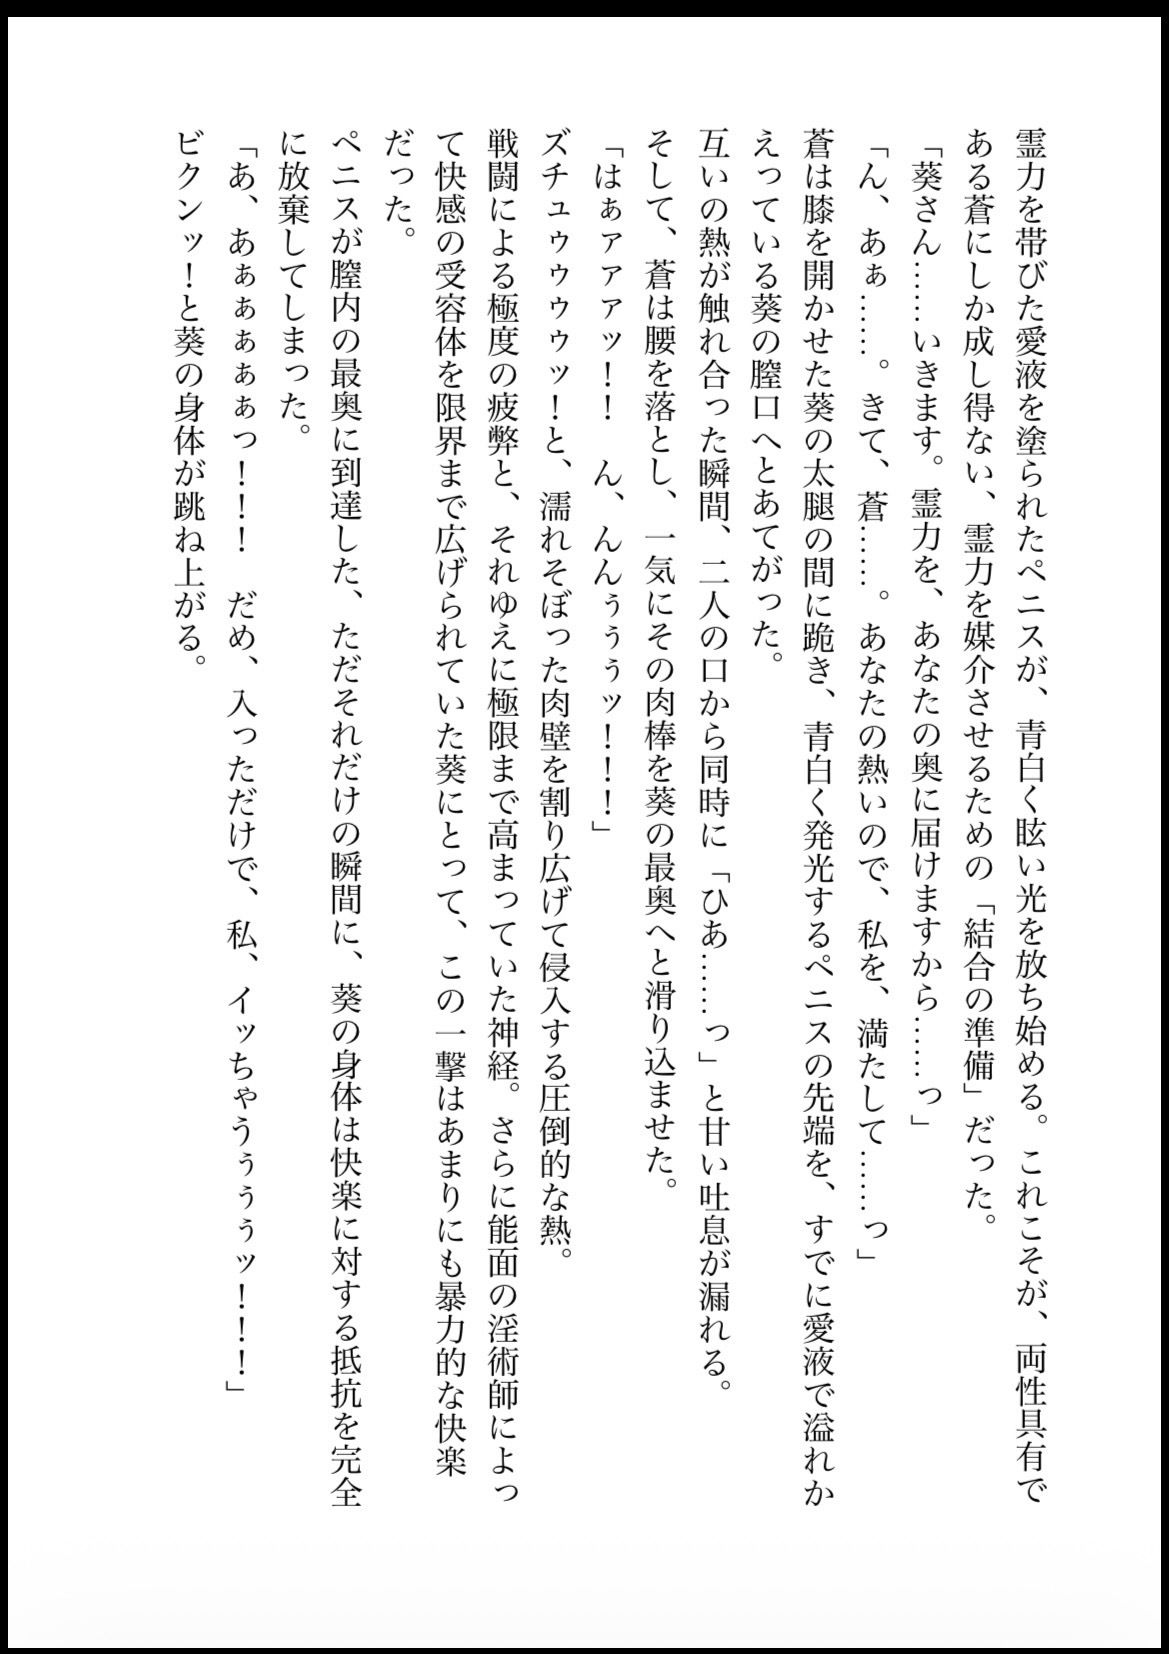 霊力を帯びた愛液を塗られたペニスが、青白く眩い光を放ち始める。これこそが、両性具有で
ある蒼にしか成し得ない、霊力を媒介させるための「結合の準備」だった。
「葵さん……いきます。霊力を、あなたの奥に届けますから……っ」
「ん、あぁ……。きて、蒼……。あなたの熱いので、私を、満たして……っ」
蒼は膝を開かせた葵の太腿の間に跪き、青白く発光するペニスの先端を、すでに愛液で溢れか
えっている葵の膣口へとあてがった。
互いの熱が触れ合った瞬間、二人の口から同時に「ひあ……っ」と甘い吐息が漏れる。
そして、蒼は腰を落とし、一気にその肉棒を葵の最奥へと滑り込ませた。
「はぁァァァッ！！　ん、んんぅぅぅッ！！！」
ズチュゥゥゥゥッ！と、濡れそぼった肉壁を割り広げて侵入する圧倒的な熱。
戦闘による極度の疲弊と、それゆえに極限まで高まっていた神経。さらに能面の淫術師によっ
て快感の受容体を限界まで広げられていた葵にとって、この一撃はあまりにも暴力的な快楽
だった。
ペニスが膣内の最奥に到達した、ただそれだけの瞬間に、葵の身体は快楽に対する抵抗を完全
に放棄してしまった。
「あ、あぁぁぁぁぁっ！！！　だめ、入っただけで、私、イッちゃうぅぅぅッ！！！」
ビクンッ！と葵の身体が跳ね上がる。